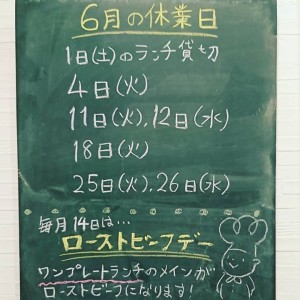 6月の休業日
1日(土)のランチ貸切
4日(火)
11日(火),12日(水)
18日(火)
25日(火),26日(水)
毎月14日は…
ローストビーフデー
ワンプレートランチのメインが
ローストビーフになります!